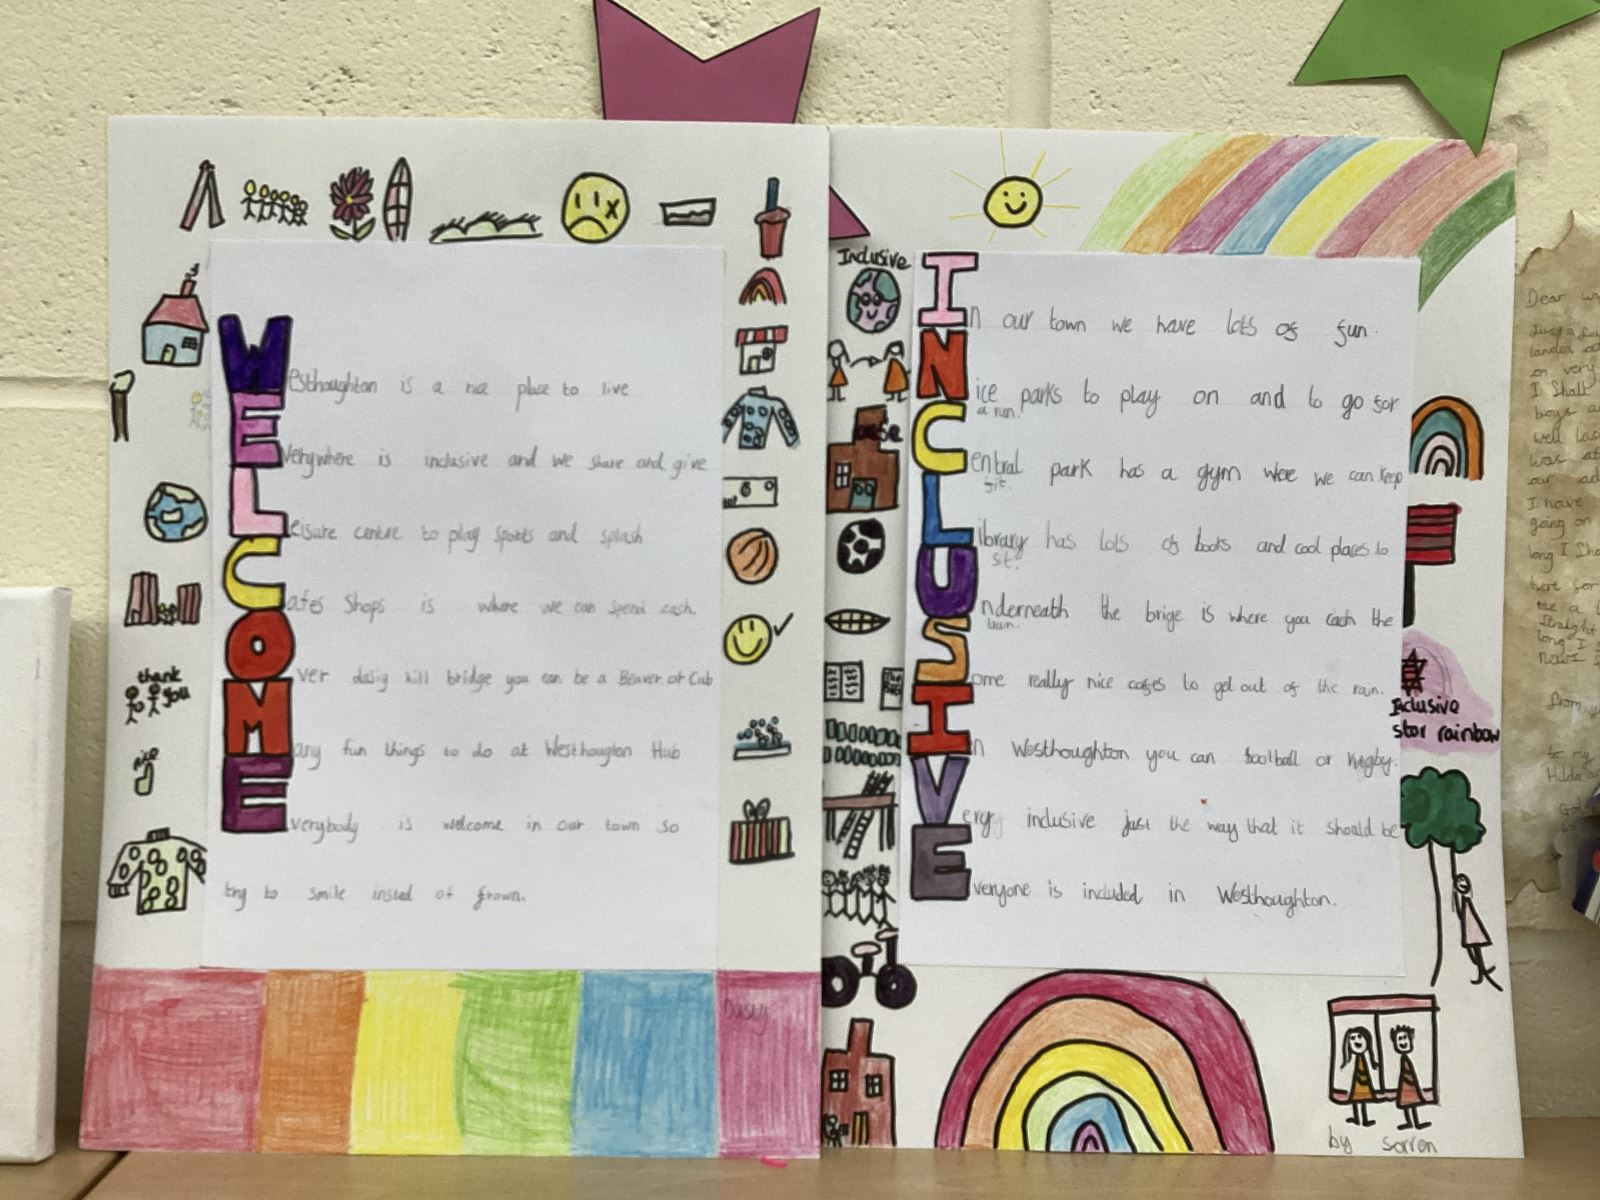 Westhoughton is a nice place to live
Everywhere is inclusive and we share and give
Leisure centre to play sports and splash
Cafes Shops is where we can spend cash.
Over dasiy hill bridge you can be a Beaver or Cub
Many fun things to do at Westhougton Hub
Everybody is welcome in our town so
try to smile insted of frown.
thank
you
nice
Dasiy
Inclusive
In our town we have lots of fun.
Nice parks to play on and to go for
a run.
Central park has a gym were we can keep
fit.
Library has lots of books and cool places to
sit.
Underneath the brige is where you cach the
train.
Some really nice cafes to get out of the rain.
In Westhoughton you can football or rugby.
Very inclusive just the way that it should be
Everyone is included in Westhoughton.
Inclusive
star rainbow
by sorren
Dear
I Shall
boys
well
was at
I have
going on
long I
me a
long I
to my
Hilda